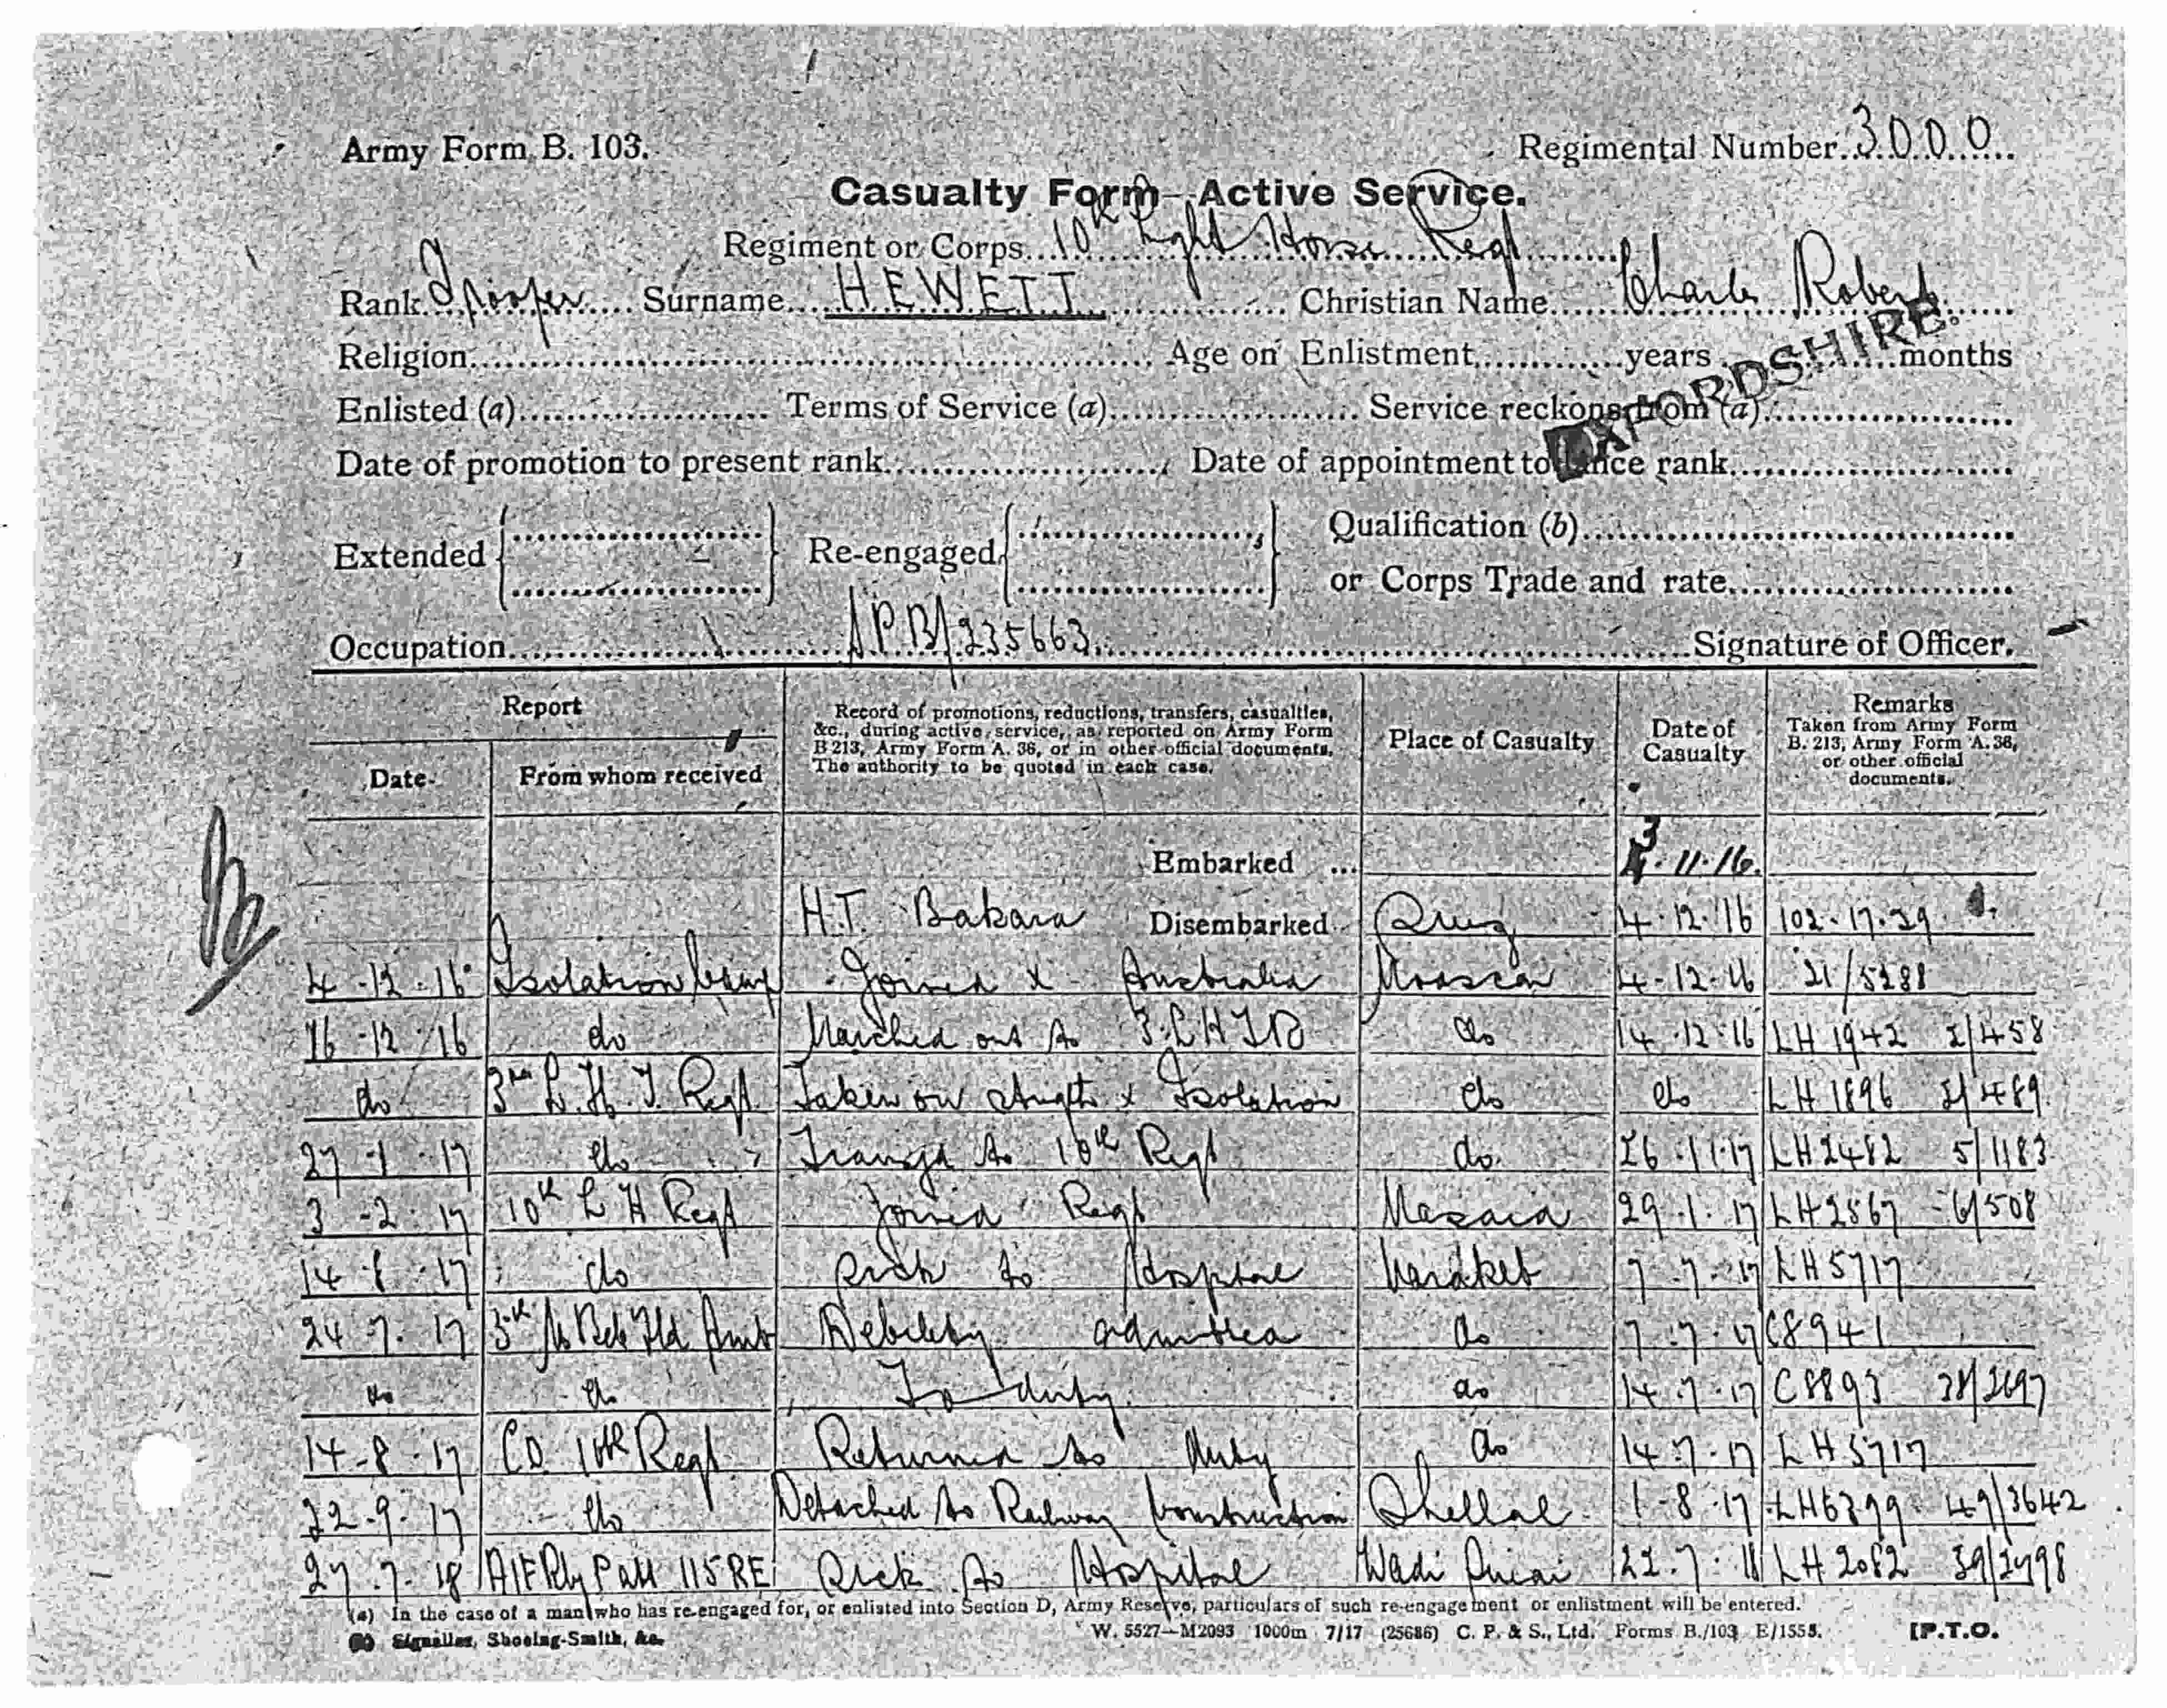 Army Form B. 103. Regimental Number 3000
Casualty Form—Active Service.
Regiment or Corps 10th Light Horse Regt
Rank Trooper Surname HEWETT Christian Name Charles Robert
Religion Age on Enlistment years months
Enlisted (a) Terms of Service (a) Service reckons from (a)
OXFORDSHIRE.
Date of promotion to present rank Date of appointment to lance rank
Extended Re-engaged Qualification (b)
or Corps Trade and rate
Occupation Signature of Officer.
Report Record of promotions, reductions, transfers, casualties, &c., during active service, as reported on Army Form B 213, Army Form A. 36, or in other official documents. The authority to be quoted in each case. Place of Casualty Date of Casualty Remarks Taken from Army Form B. 213, Army Form A. 36, or other official documents.
Date From whom received
Embarked ... 11.16.
H.T. Bakara Disembarked Suez 4.12.16 102.17.29
4-12-16 Isolation Camp Joined x Australia Moascar 4-12-16 21/5288
16-12-16 do Marched out to 3.LHTR do 14-12-16 LH 1942 2/458
do 3rd L.H.T. Regt Taken on strength x Isolation do do LH 1896 2/489
27-1-17 do Transfd to 10th Regt do 26.1.17 LH2482 5/1183
3-2-17 10th L H Regt Joined Regt Mazaid 29.1.17 LH2567 6/508
14-8-17 do Sick to Hospital Marakeb 7.7.17 LH5717
24.7.17 Fld Amb Debility admitted do 7.7.17 C8941
do do To duty do 14.7.17 C8893
14-8-17 CO 10th Regt Returned to Duty do 14.7.17 LH5717
22-9-17 do Detached to Railway Construction Shellal 1-8-17 LH6399 49/3642
27.7.18 115RE Sick to Hospital Wadi 22.7.18 LH2082 39/2498
(a) In the case of a man who has re-engaged for, or enlisted into Section D, Army Reserve, particulars of such re-engagement or enlistment will be entered.
(b) Signaller, Shoeing-Smith, &c. W. 5527—M2093 1000m 7/17 (25686) C. P. & S., Ltd. Forms B./103 E/1555. [P.T.O.